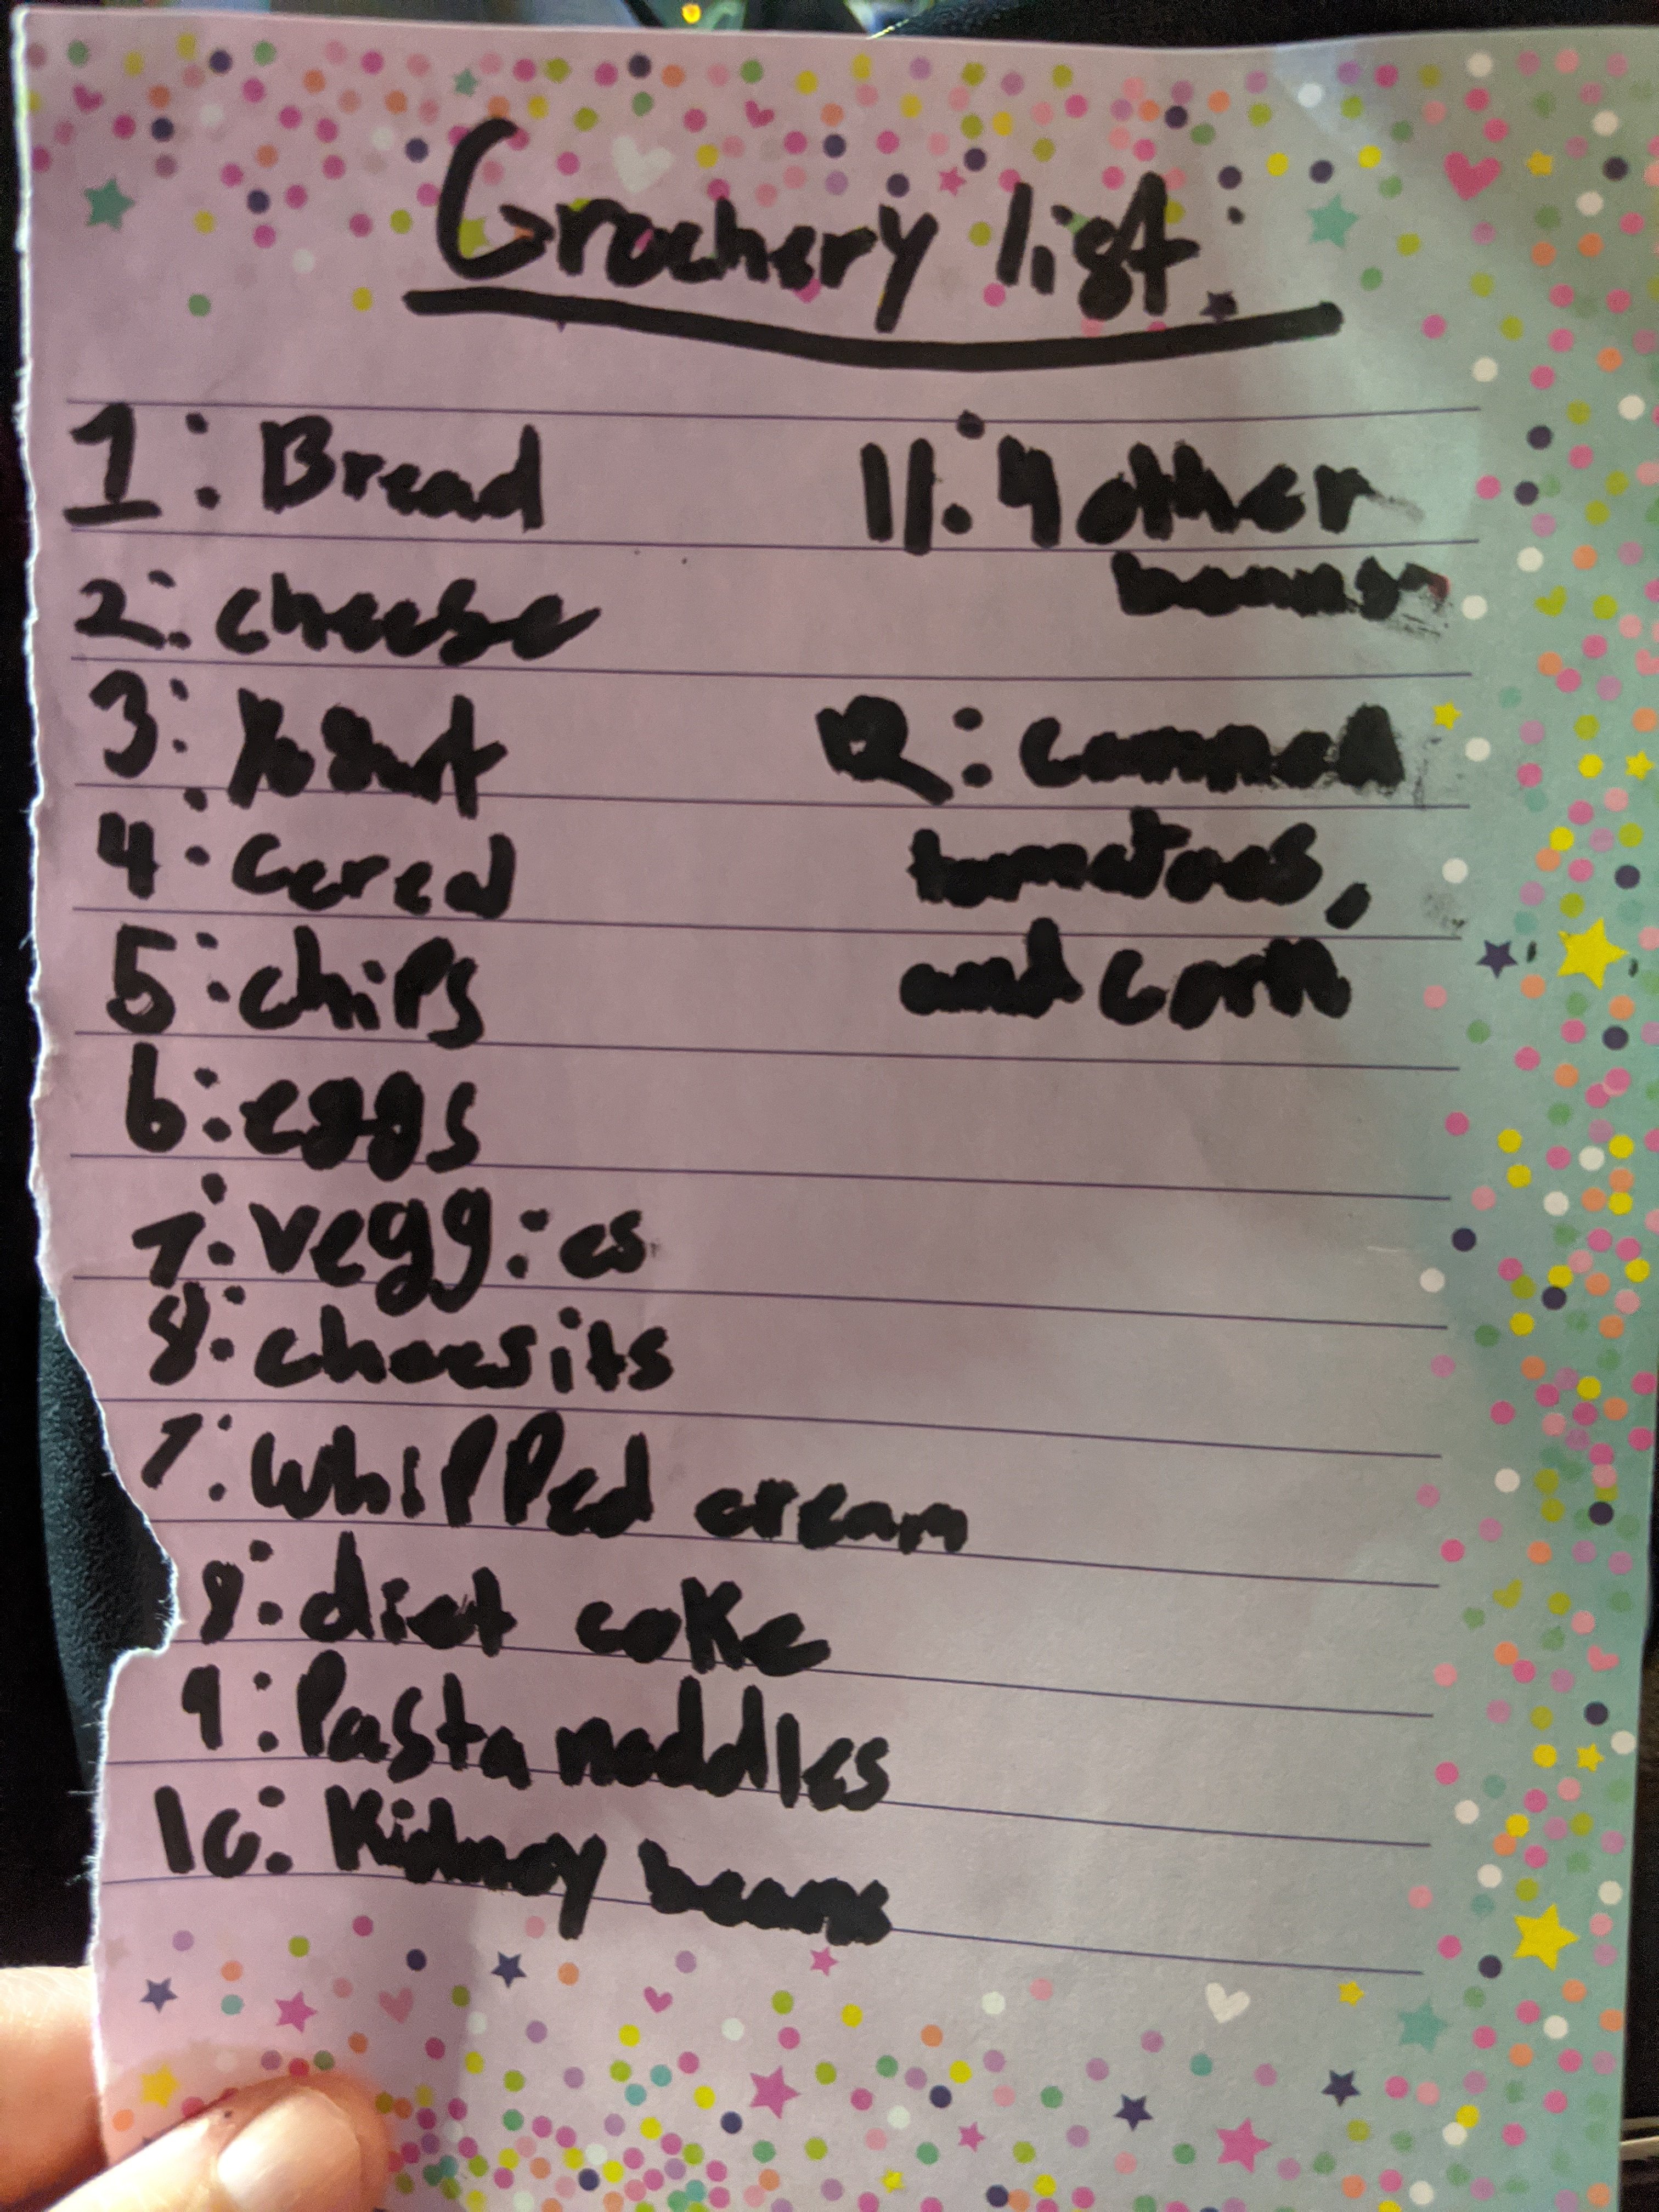 Grochery list:
1: Bread
2: cheese
3: Yogurt
4: Cereal
5: chips
6: eggs
7: veggies
8: cheesits
7: whipped cream
8: diet coke
9: Pasta noddles
10: Kidney beans
11: 4 other
beans
12: canned
tomatoes,
and corn